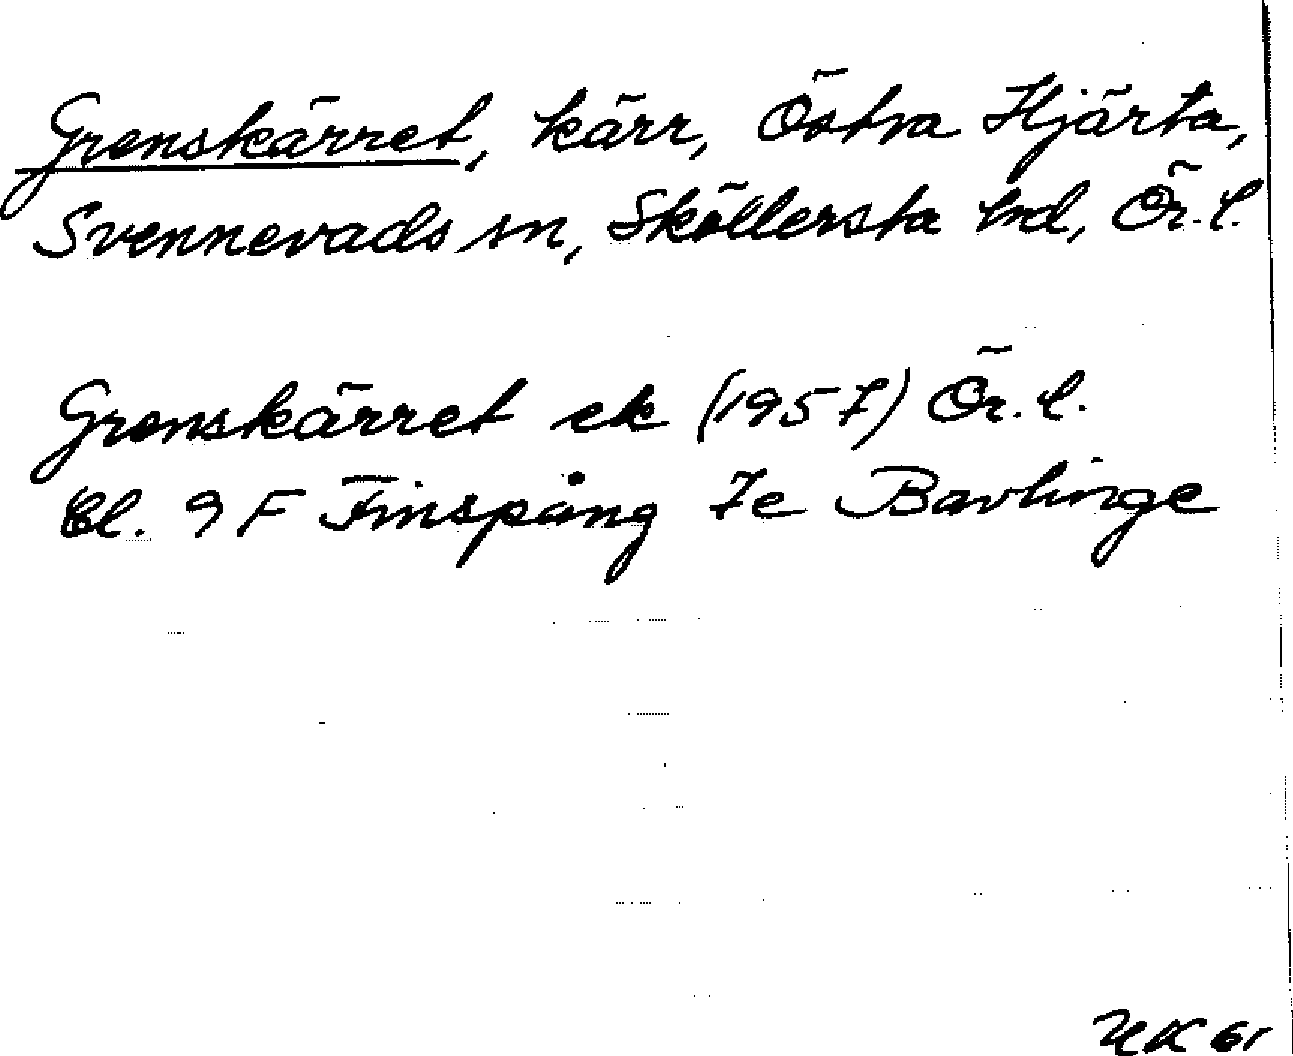 Grenskärret, kärr, Östra Hjärta,
Svennevads sn, Sköllersta hd, Ör. l.
Grenskärret ek (1957) Ör. l.
Bl. 9 F Finspång 7e Bavlinge
HK 61